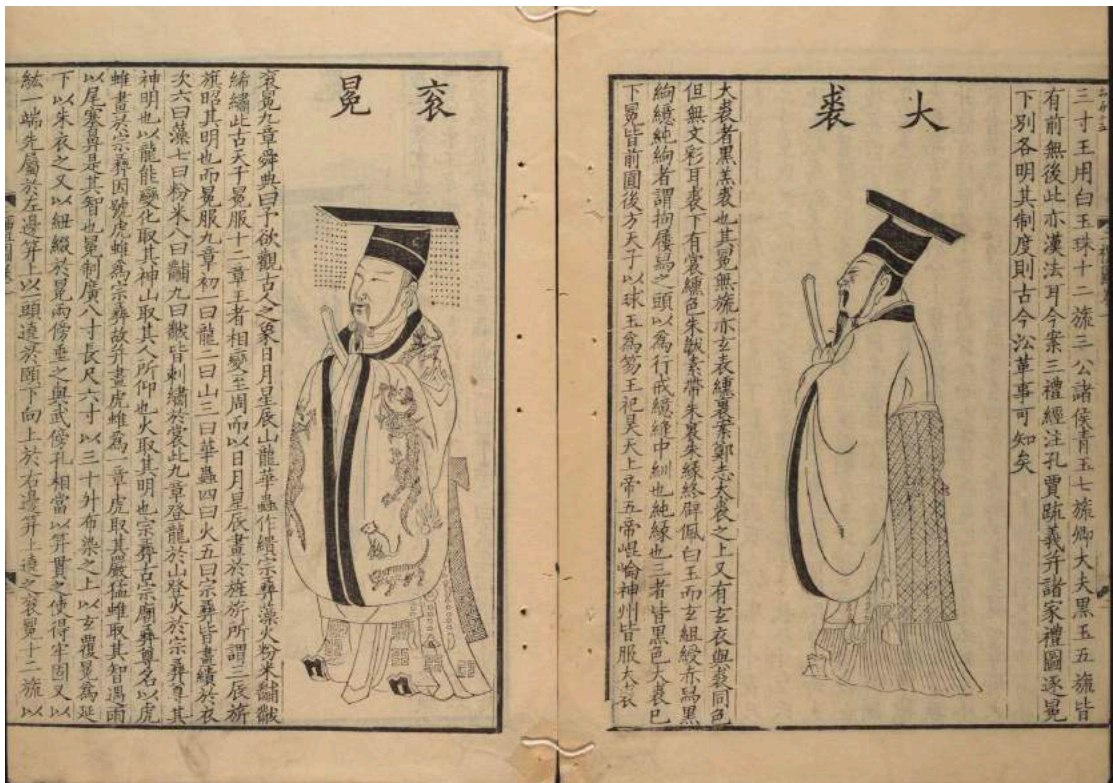 三寸王用白玉珠十二旒三公諸侯青玉七旒卿大夫黑玉五旒皆
有前無後此亦漢法耳今案三禮經注孔賈疏義并諸家禮圖逐冕
下別各明其制度則古今沿革事可知矣
大裘
大裘者黑羔裘也其冕無旒亦玄表纁裏案鄭志大裘之上又有玄衣與裘同色
但無文彩耳裘下有裳纁色朱韍素帶朱裏朱緣終辟佩白玉而玄組綬赤舄黑
絇繶純絇者謂拘屨舄之頭以為行戒繶縫中紃也純緣也三者皆黑色大裘已
下冕皆前圓後方天子以球玉為笏王祀昊天上帝五帝崐崘神州皆服大裘
袞冕
袞冕九章舜典曰予欲觀古人之象日月星辰山龍華蟲作繢宗彝藻火粉米黼黻
絺繡此古天子冕服十二章王者相變至周而以日月星辰畫於旌旂所謂三辰旂
旗昭其明也而冕服九章初一曰龍二曰山三曰華蟲四曰火五曰宗彝皆畫繢於衣
次六曰藻七曰粉米八曰黼九曰黻皆刺繡於裳此九章登龍於山登火於宗彝尊其
神明也以龍能變化取其神山取其人所仰也火取其明也宗彝古宗廟彝尊名以虎
蜼畫於宗彝因號虎蜼為宗彝故并畫虎蜼為一章虎取其嚴猛蜼取其智遇雨
以尾塞鼻是其智也冕制廣八寸長尺六寸以三十升布染之上以玄覆冕為延
下以朱衣之又以紐綴於冕兩傍垂之與武傍孔相當以笄貫之使得牢固又以
紘一端先屬於左邊笄上以一頭遶於頤下向上於右邊笄上遶之袞冕十二旒以